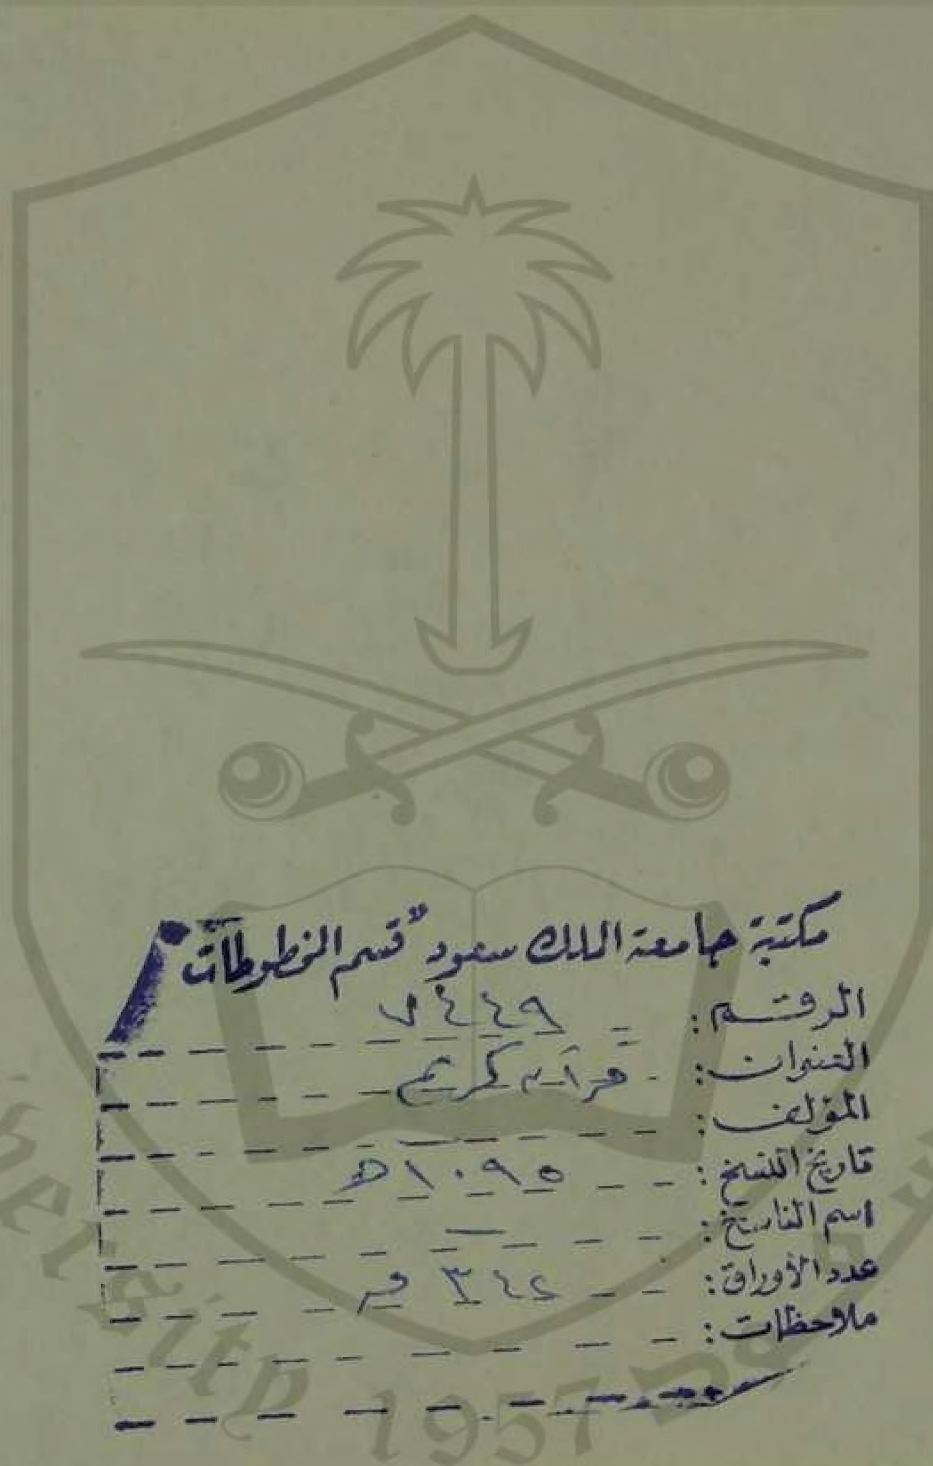 مكتبة جامعة الملك سعود "قسم المخطوطات"
الرقم: ٧٤٤٩
العنوان: قرآن كريم
المؤلف: —
تاريخ النسخ: ١٠٩٥ هـ
اسم الناسخ: —
عدد الأوراق: ٣٤٢ ور
ملاحظات:
1957